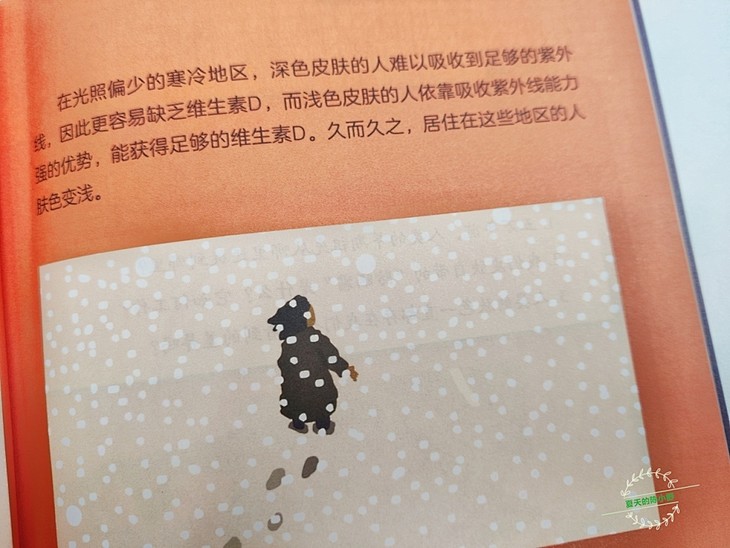 在光照偏少的寒冷地区，深色皮肤的人难以吸收到足够的紫外
线，因此更容易缺乏维生素D，而浅色皮肤的人依靠吸收紫外线能力
强的优势，能获得足够的维生素D。久而久之，居住在这些地区的人
肤色变浅。